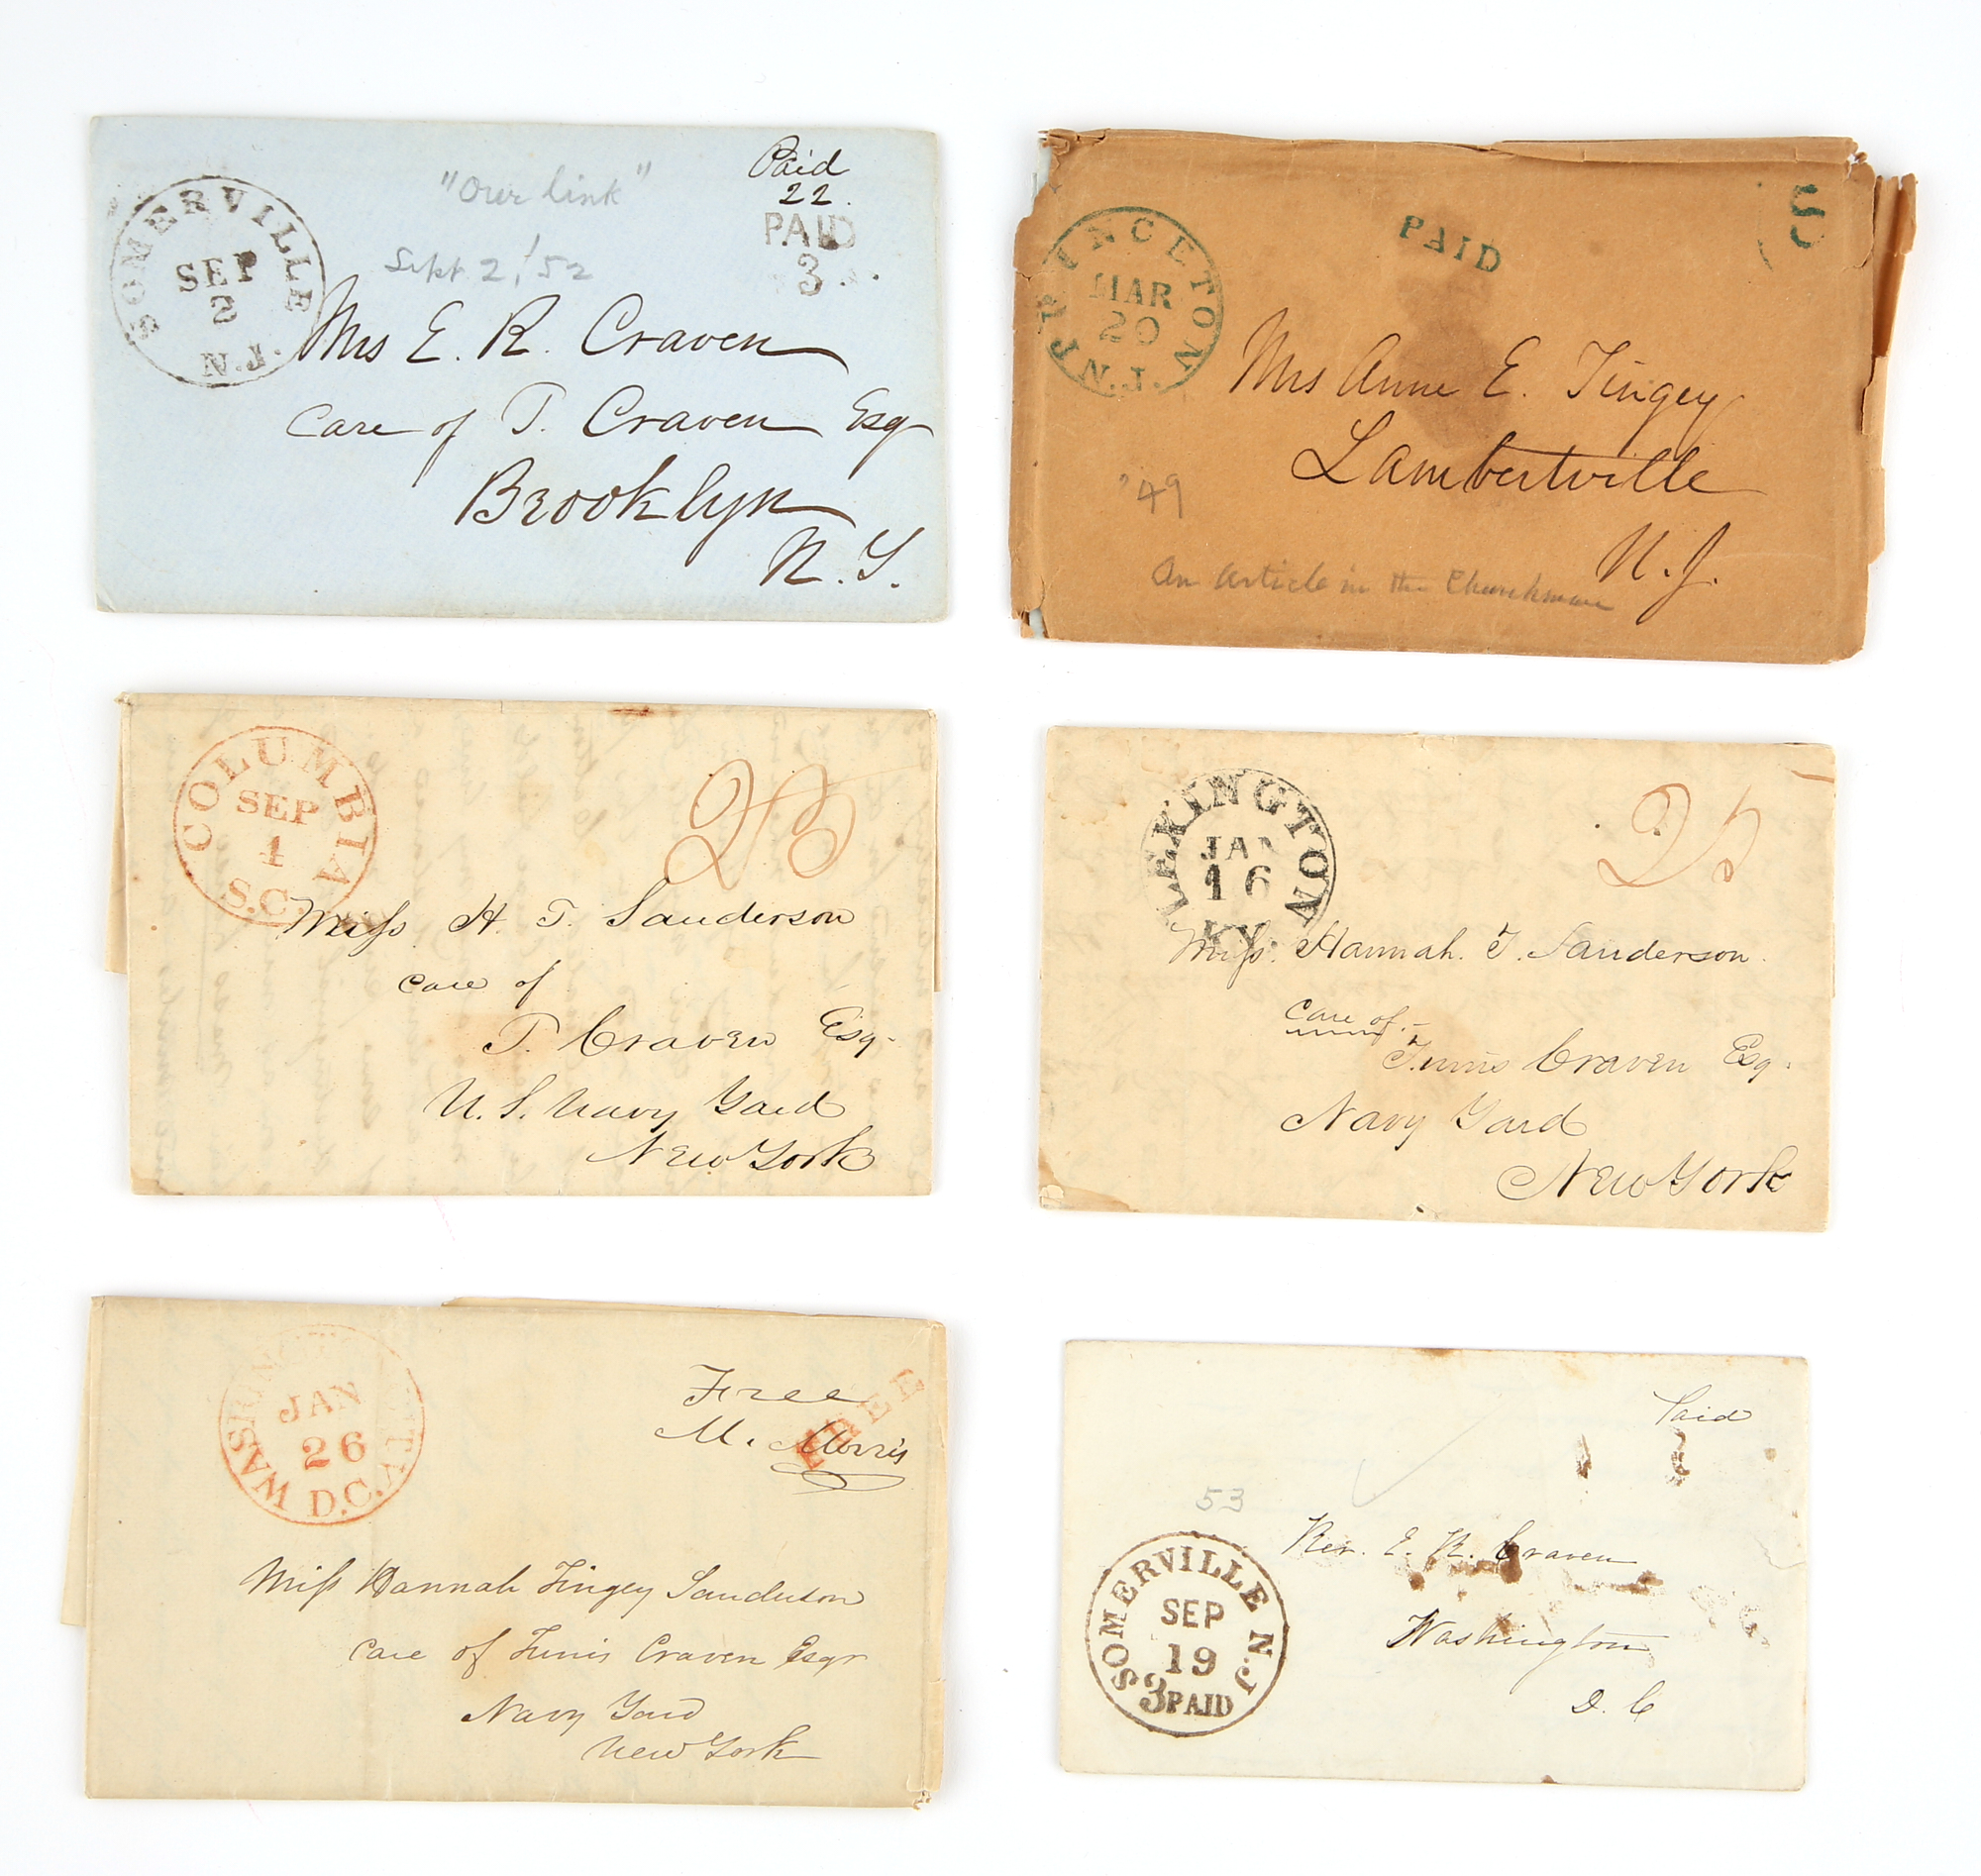 SOMERVILLE
SEP
2
N.J.
"Our link"
Sept 2,/52
Paid
22.
PAID
3
Mrs E. R. Craven
Care of T. Craven Esq
Brooklyn
N.Y.
PRINCETON
MAR
20
N.J.
PAID
5
Mrs Anne E. Tingey
Lambertville
N.J.
'49
An article in the Churchman
COLUMBIA
SEP
1
S.C.
25
Miss H. T. Sanderson
care of
T. Craven Esq-
U.S. Navy Yard
New York
LEXINGTON
JAN
16
KY.
25
Miss. Hannah. T. Sanderson.
Care of.-
Tunis Craven Esq.
Navy Yard
New York
WASHINGTON CITY
JAN
26
D.C.
Free
M. Morris
FREE
Miss Hannah Tingey Sanderson
Care of Tunis Craven Esqr
Navy Yard
New York
Paid
53
SOMERVILLE N.J
SEP
19
3 PAID
Rev. E. R. Craven
Washington
D. C